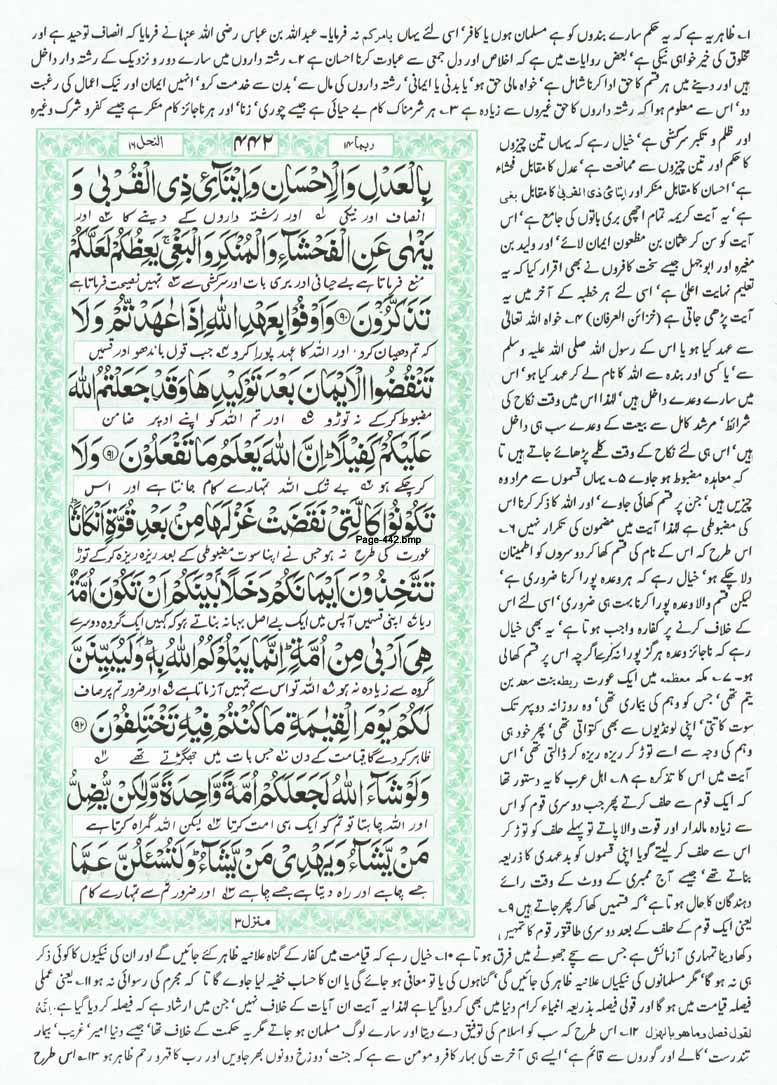 ۱۔ ظاہر یہ ہے کہ یہ حکم سارے بندوں کو ہے مسلمان ہوں یا کافر' اسی لئے یہاں یامرکم نہ فرمایا۔ عبداللہ بن عباس رضی اللہ عنہا نے فرمایا کہ انصاف توحید ہے اور
مخلوق کی خیر خواہی نیکی ہے' بعض روایات میں ہے کہ اخلاص اور دل جمعی سے عبادت کرنا احسان ہے ۲۔ رشتہ داروں میں سارے دور و نزدیک کے رشتہ دار داخل
ہیں اور دینے میں ہر قسم کا حق ادا کرنا شامل ہے' خواہ مالی حق ہو' یا بدنی یا ایمانی' رشتہ داروں کی مال سے' بدن سے خدمت کرو' انہیں ایمان اور نیک اعمال کی رغبت
دو' اس سے معلوم ہوا کہ رشتہ داروں کا حق غیروں سے زیادہ ہے ۳۔ ہر شرمناک کام بے حیائی ہے جیسے چوری' زنا' اور ہر ناجائز کام منکر ہے جیسے کفر و شرک وغیرہ
ربما ۱۴
۴۴۲
النحل ۱۶
بِالْعَدْلِ وَالْاِحْسَانِ وَاِيْتَآئِ ذِى الْقُرْبٰى وَ
انصاف اور نیکی اور رشتہ داروں کے دینے کا اور
يَنْهٰى عَنِ الْفَحْشَآءِ وَالْمُنْكَرِ وَالْبَغْىِ ۚ يَعِظُكُمْ لَعَلَّكُمْ
منع فرماتا ہے بے حیائی اور بری بات اور سرکشی سے تمہیں نصیحت فرماتا ہے
تَذَكَّرُوْنَ ۹۰ وَاَوْفُوْا بِعَهْدِ اللّٰهِ اِذَا عٰهَدْتُّمْ وَلَا
کہ تم دھیان کرو اور اللہ کا عہد پورا کرو جب قول باندھو اور قسمیں
تَنْقُضُوا الْاَيْمَانَ بَعْدَ تَوْكِيْدِهَا وَقَدْ جَعَلْتُمُ اللّٰهَ
مضبوط کرکے نہ توڑو اور تم اللہ کو اپنے اوپر ضامن
عَلَيْكُمْ كَفِيْلًا ؕ اِنَّ اللّٰهَ يَعْلَمُ مَا تَفْعَلُوْنَ ۹۱ وَلَا
کر چکے ہو بے شک اللہ تمہارے کام جانتا ہے اور اس
تَكُوْنُوْا كَالَّتِىْ نَقَضَتْ غَزْلَهَا مِنْۢ بَعْدِ قُوَّةٍ اَنْكَاثًا ؕ
Page-442.bmp
عورت کی طرح نہ ہو جس نے اپنا سوت مضبوطی کے بعد ریزہ ریزہ کر کے توڑ
تَتَّخِذُوْنَ اَيْمَانَكُمْ دَخَلًاۢ بَيْنَكُمْ اَنْ تَكُوْنَ اُمَّةٌ
دیا اپنی قسمیں آپس میں ایک بے اصل بہانہ بناتے ہو کہ کہیں ایک گروہ دوسرے
هِىَ اَرْبٰى مِنْ اُمَّةٍ ؕ اِنَّمَا يَبْلُوْكُمُ اللّٰهُ بِهٖ ؕ وَلَيُبَيِّنَنَّ
گروہ سے زیادہ نہ ہو اللہ تو اس سے تمہیں آزماتا ہے اور ضرور تم پر صاف
لَكُمْ يَوْمَ الْقِيٰمَةِ مَا كُنْتُمْ فِيْهِ تَخْتَلِفُوْنَ ۹۲
ظاہر کر دے گا قیامت کے دن جس بات میں جھگڑتے تھے
وَلَوْ شَآءَ اللّٰهُ لَجَعَلَكُمْ اُمَّةً وَّاحِدَةً وَّلٰكِنْ يُّضِلُّ
اور اللہ چاہتا تو تم کو ایک ہی امت کرتا لیکن اللہ گمراہ کرتا ہے
مَنْ يَّشَآءُ وَيَهْدِىْ مَنْ يَّشَآءُ ؕ وَلَتُسْئَلُنَّ عَمَّا
جسے چاہے اور راہ دیتا ہے جسے چاہے اور ضرور تم سے تمہارے کام
منزل ۳
اور ظلم و تکبر سرکشی ہے' خیال رہے کہ یہاں تین چیزوں
کا حکم اور تین چیزوں سے ممانعت ہے' عدل کا مقابل فحشاء
ہے' احسان کا مقابل منکر اور ایتائ ذی القربی کا مقابل بغی
ہے' یہ آیت کریمہ تمام اچھی بری باتوں کی جامع ہے' اس
آیت کو سن کر عثمان بن مظعون ایمان لائے' اور ولید بن
مغیرہ اور ابوجہل جیسے سخت کافروں نے بھی اقرار کیا کہ یہ
تعلیم نہایت اعلیٰ ہے' اسی لئے ہر خطبہ کے آخر میں یہ
آیت پڑھی جاتی ہے (خزائن العرفان) ۴۔ خواہ اللہ تعالیٰ
سے عہد کیا ہو یا اس کے رسول اللہ صلی اللہ علیہ وسلم
سے' یا کسی اور بندہ سے اللہ کا نام لے کر عہد کیا ہو' اس
میں سارے وعدے داخل ہیں' لہٰذا اس میں وقت نکاح کی
شرائط' مرشد کامل سے بیعت کے وعدے سب ہی داخل
ہیں' اس ہی لئے نکاح کے وقت کلمے پڑھائے جاتے ہیں تا
کہ معاہدہ مضبوط ہو جاوے ۵۔ یہاں قسموں سے مراد وہ
چیزیں ہیں' جن پر قسم کھائی جاوے' اور اللہ کا ذکر کرنا اس
کی مضبوطی ہے لہٰذا آیت میں مضمون کی تکرار نہیں ۶۔
اس طرح کہ اس کے نام کی قسم کھا کر دوسروں کو اطمینان
دلا چکے ہو' خیال رہے کہ ہر وعدہ پورا کرنا ضروری ہے'
لیکن قسم والا وعدہ پورا کرنا بہت ہی ضروری' اسی لئے اس
کے خلاف کرنے پر کفارہ واجب ہوتا ہے' یہ بھی خیال
رہے کہ ناجائز وعدہ ہرگز پورا نہ کرے اگرچہ اس پر قسم کھالی
ہو۔ ۷۔ مکہ معظمہ میں ایک عورت ریطہ بنت سعد بن
یتم تھی' جس کو وہم کی بیماری تھی' وہ روزانہ دوپہر تک
سوت کاتتی' اپنی لونڈیوں سے بھی کتواتی تھی' پھر خود ہی
وہم کی وجہ سے اسے توڑ کر ریزہ ریزہ کر ڈالتی تھی' اس
آیت میں اس کا تذکرہ ہے ۸۔ اہل عرب کا یہ دستور تھا
کہ ایک قوم سے حلف کرتے پھر جب دوسری قوم کو اس
سے زیادہ مالدار اور قوت والا پاتے تو پہلے حلف کو توڑ کر
اس سے حلف کر لیتے گویا اپنی قسموں کو بدعہدی کا ذریعہ
بناتے تھے' جیسے آج ممبری کے ووٹ کے وقت رائے
دہندگان کا حال ہوتا ہے' کہ قسمیں کھا کر پھر جاتے ہیں ۹۔
یعنی ایک قوم کے حلف کے بعد دوسری طاقتور قوم کا تمہیں
دکھا دینا تمہاری آزمائش ہے جس سے سچے جھوٹے میں فرق ہوتا ہے ۱۰۔ خیال رہے کہ قیامت میں کفار کے گناہ علانیہ ظاہر کئے جائیں گے اور ان کی نیکیوں کا کوئی ذکر
ہی نہ ہو گا' مگر مسلمانوں کی نیکیاں علانیہ ظاہر کی جائیں گی' گناہوں کی یا تو معافی ہو جائے گی یا ان کا حساب خفیہ لیا جاوے گا تا کہ مجرم کی رسوائی نہ ہو ۱۱۔ یعنی عملی
فیصلہ قیامت میں ہو گا اور قولی فیصلہ بذریعہ انبیاء کرام دنیا میں بھی کر دیا گیا ہے لہٰذا یہ آیت ان آیات کے خلاف نہیں' جن میں ارشاد ہے کہ فیصلہ کر دیا گیا ہے۔ انه
لقول فصل وما هو بالهزل ۱۲۔ اس طرح کہ سب کو اسلام کی توفیق دے دیتا اور سارے لوگ مسلمان ہو جاتے مگر یہ حکمت کے خلاف تھا' جیسے دنیا امیر' غریب' بیمار
تندرست' کالے اور گوروں سے قائم ہے' ایسے ہی آخرت کی بہار کافر و مومن سے ہے کہ جنت' دوزخ دونوں بھر جاویں اور رب کا قہر و رحم ظاہر ہو ۱۳۔ اس طرح